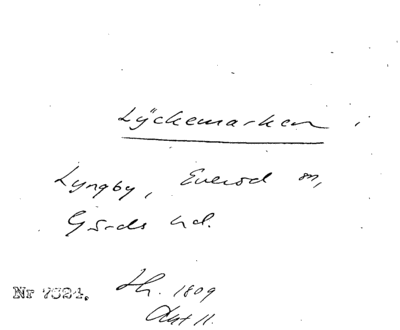 Lyckemarken
Lyngby, Everöd sn,
Gärds hd.
Nr 7324. Lh. 1809
Akt 11.